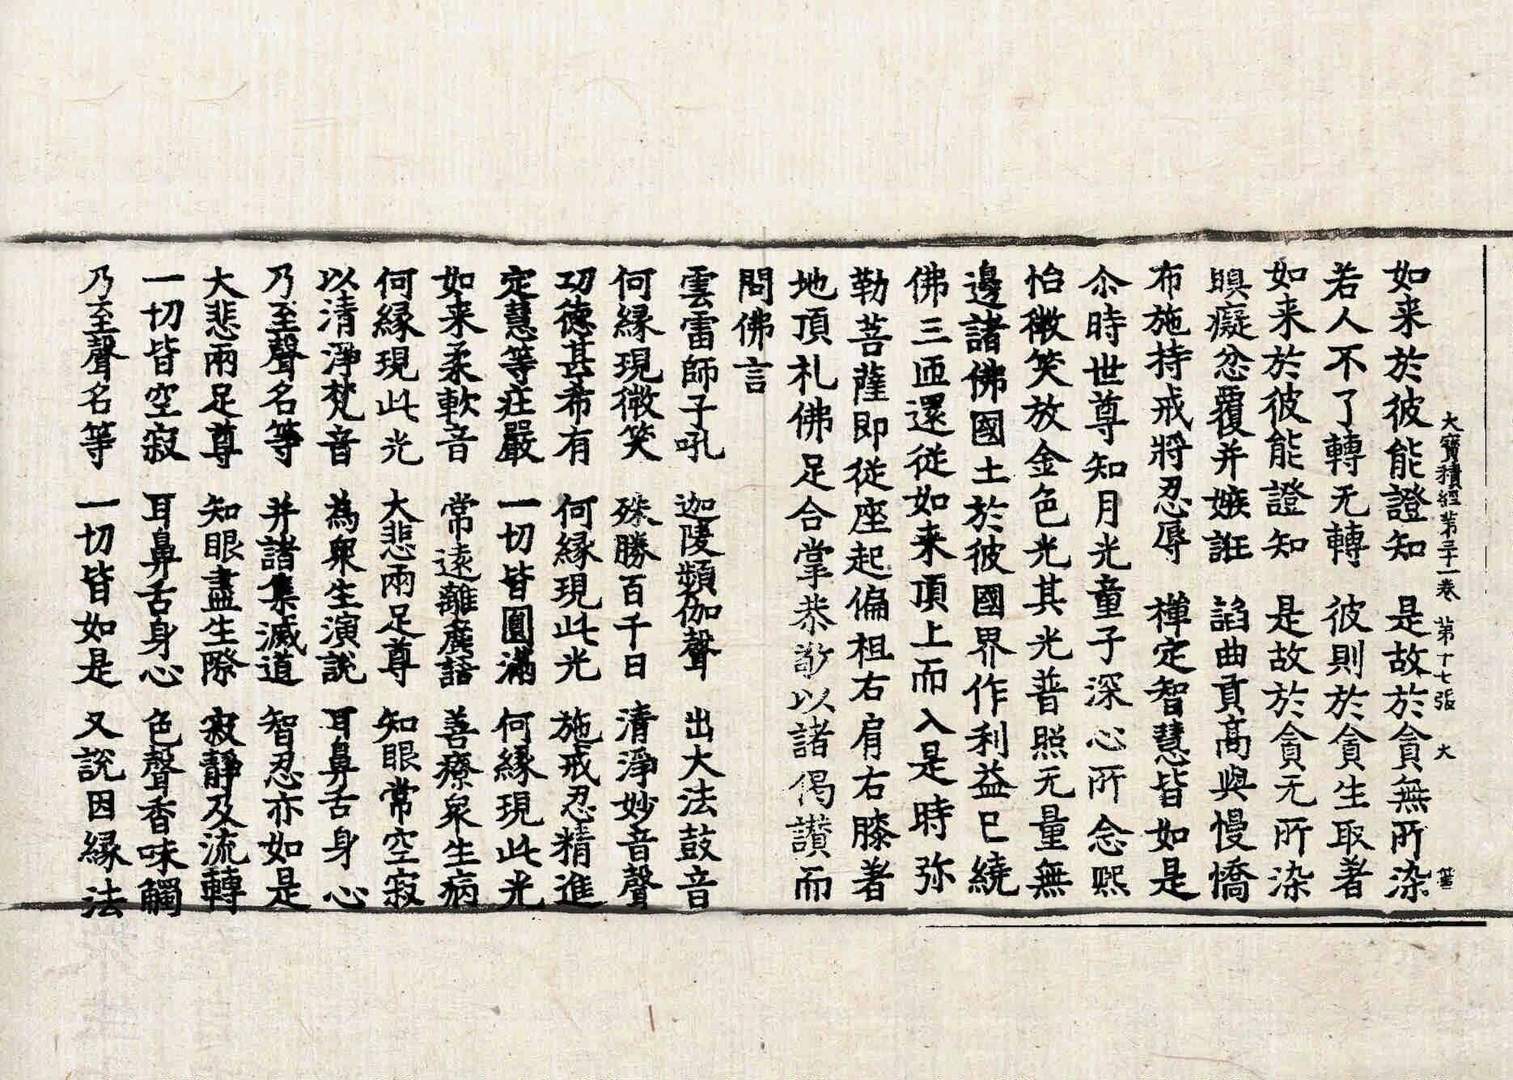 大寶積經第三十一卷 第十七張 大
如来於彼能證知 是故於貪無所染
若人不了轉无轉 彼則於貪生取著
如来於彼能證知 是故於貪无所染
瞋癡忿覆并嫉誑 諂曲貢高與慢憍
布施持戒將忍辱 禪定智慧皆如是
尒時世尊知月光童子深心所念熙
怡微笑放金色光其光普照无量無
邊諸佛國土於彼國界作利益已繞
佛三迊還従如来頂上而入是時弥
勒菩薩即従座起偏袒右肩右膝著
地頂札佛足合掌恭敬以諸偈讃而
問佛言
雲雷師子吼 迦陵頻伽聲 出大法鼓音
何緣現微笑 殊勝百千日 清淨妙音聲
功德甚希有 何緣現此光 施戒忍精進
定慧等莊嚴 一切皆圓滿 何緣現此光
如来柔軟音 常遠離麁語 善療衆生病
何緣現此光 大悲兩足尊 知眼常空寂
以清淨梵音 為衆生演說 耳鼻舌身心
乃至聲名等 并諸集滅道 智忍亦如是
大悲兩足尊 知眼盡生際 寂靜及流轉
一切皆空寂 耳鼻舌身心 色聲香味觸
乃至聲名等 一切皆如是 又說因緣法